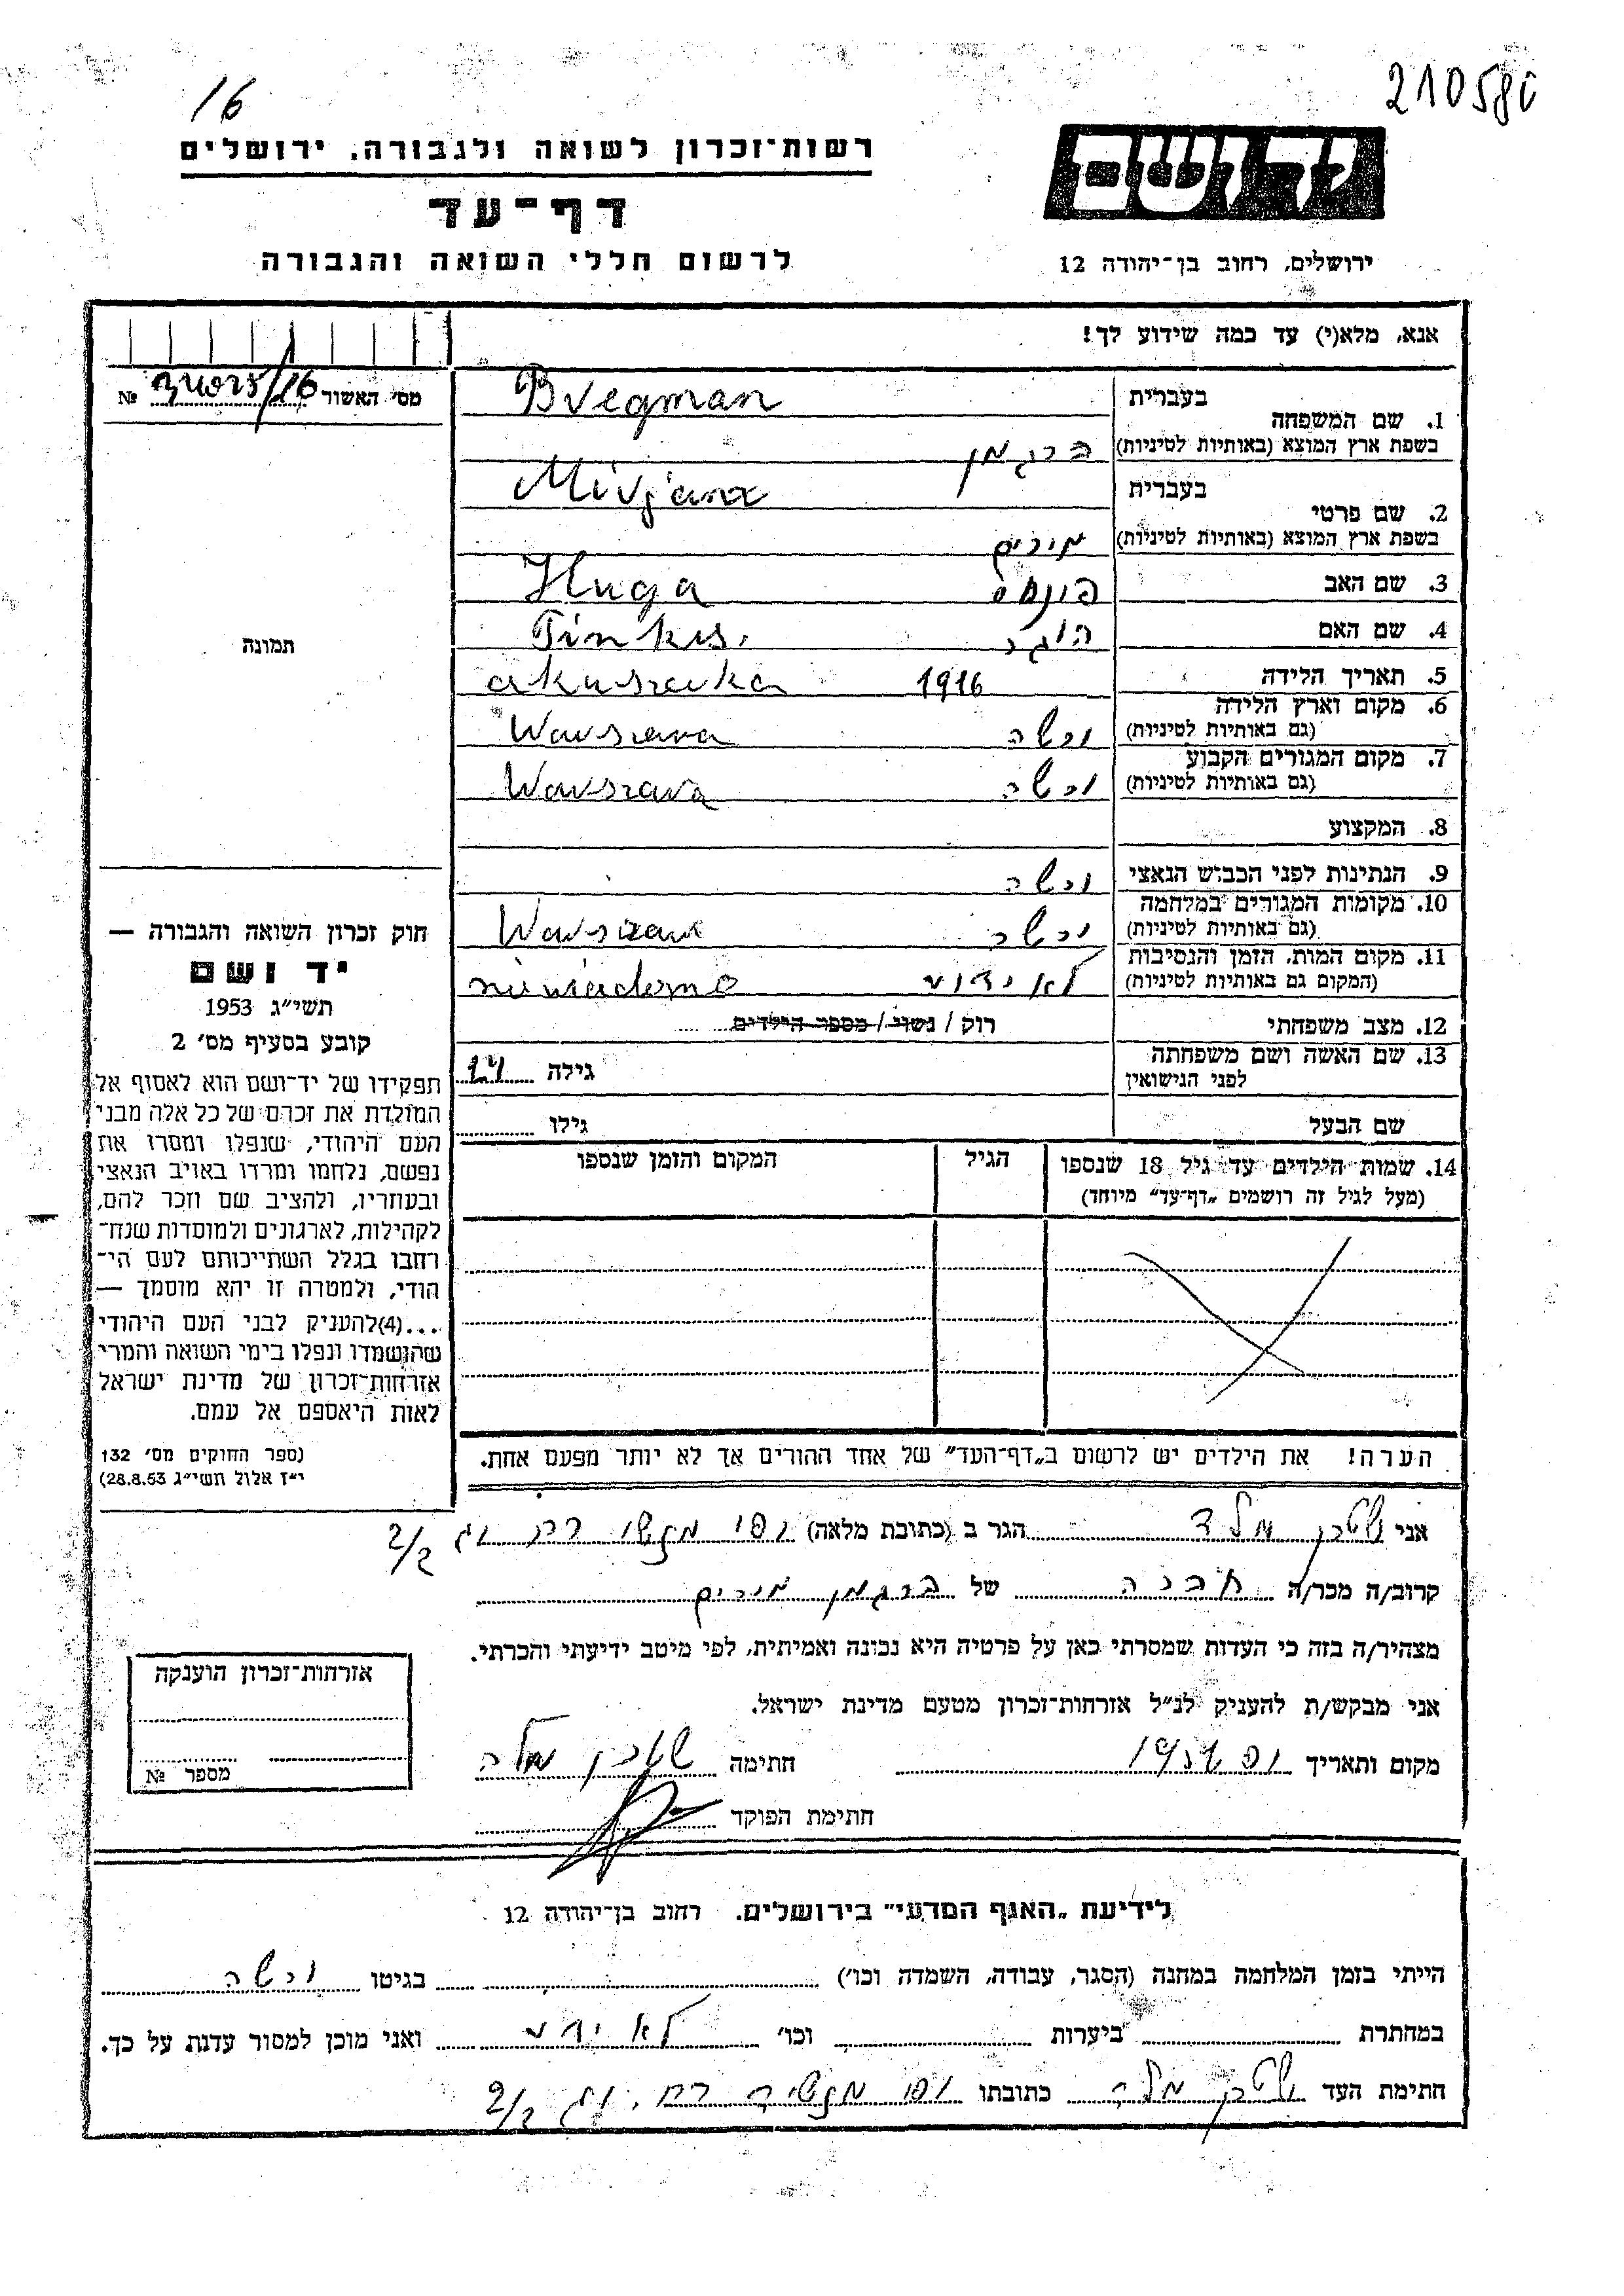 16
210580
רשות־זכרון לשואה ולגבורה, ירושלים
יד ושם
דף־עד
לרשום חללי השואה והגבורה
ירושלים, רחוב בן־יהודה 12
אנא, מלא(י) עד כמה שידוע לך!
מס׳ האשור № /16
בעברית Bregman
1. שם המשפחה
בשפת ארץ המוצא (באותיות לטיניות) ברגמן
בעברית Mirjana
2. שם פרטי
בשפת ארץ המוצא (באותיות לטיניות) מירים
3. שם האב פינחס Huga
4. שם האם הוגה Pinkus.
5. תאריך הלידה 1916 akuszerka
6. מקום וארץ הלידה
(גם באותיות לטיניות) ורשה Warszawa
7. מקום המגורים הקבוע
(גם באותיות לטיניות) ורשה Warszawa
8. המקצוע
9. הנתינות לפני הכבוש הנאצי ורשה
10. מקומות המגורים במלחמה
(גם באותיות לטיניות) ורשה Warszawa
11. מקום המות, הזמן והנסיבות
(המקום גם באותיות לטיניות) לא ידוע niewiadomo
12. מצב משפחתי רוק / נשוי / מספר הילדים
13. שם האשה ושם משפחתה
לפני הנישואין גילה 24
שם הבעל גילו
14. שמות הילדים עד גיל 18 שנספו הגיל המקום והזמן שנספו
(מעל לגיל זה רושמים „דף־עד״ מיוחד)
הערה! את הילדים יש לרשום ב„דף־העד״ של אחד ההורים אך לא יותר מפעם אחת.
תמונה
חוק זכרון השואה והגבורה —
יד ושם
תשי״ג 1953
קובע בסעיף מס׳ 2
תפקידו של יד־ושם הוא לאסוף אל
המולדת את זכרם של כל אלה מבני
העם היהודי, שנפלו ומסרו את
נפשם, נלחמו ומרדו באויב הנאצי
ובעוזריו, ולהציב שם וזכר להם,
לקהילות, לארגונים ולמוסדות שנח־
רחבו בגלל השתייכותם לעם הי־
הודי, ולמטרה זו יהא מוסמך —
...(4) להעניק לבני העם היהודי
שהושמדו ונפלו בימי השואה והמרי
אזרחות־זכרון של מדינת ישראל
לאות היאספם אל עמם.
(ספר החוקים מס׳ 132
י״ז אלול תשי״ג 28.8.53)
אני הגר ב (כתובת מלאה) 2/2
קרוב/ה מכר/ה חברה של ברגמן מירים
מצהיר/ה בזה כי העדות שמסרתי כאן על פרטיה היא נכונה ואמיתית, לפי מיטב ידיעתי והכרתי.
אני מבקש/ת להעניק לנ״ל אזרחות־זכרון מטעם מדינת ישראל.
מקום ותאריך חתימה
חתימת הפוקד
אזרחות־זכרון הוענקה
מספר №
לידיעת „האגף המדעי״ בירושלים, רחוב בן־יהודה 12
הייתי בזמן המלחמה במחנה (הסגר, עבודה, השמדה וכו׳) בגיטו ורשה
במחתרת ביערות וכו׳ לא ידוע ואני מוכן למסור עדות על כך.
חתימת העד כתובתו 2/2